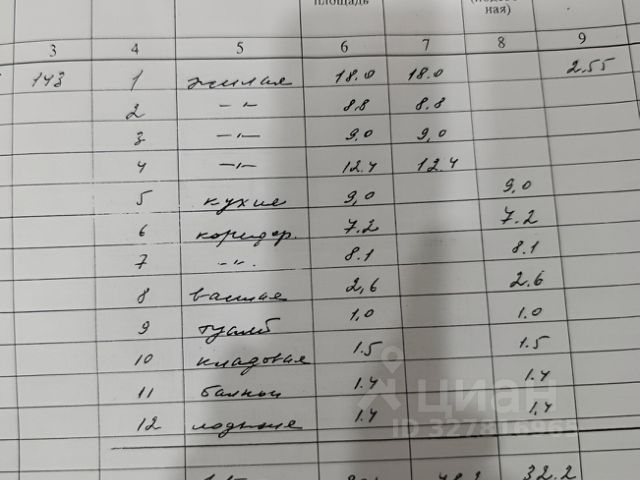 площадь
ная)
3 4 5 6 7 8 9
143 1 жилая 18.0 18.0 2.55
2 –"– 8.8 8.8
3 –"– 9,0 9,0
4 –"– 12.4 12.4
5 кухне 9,0 9,0
6 коридор. 7.2 7.2
7 –"– 8.1 8.1
8 ванная 2,6 2.6
9 туалет 1.0 1.0
10 кладовая 1.5 1.5
11 балкон 1.4 1.4
12 лоджие 1.4 1.4
32.2
циан
ID 327816965